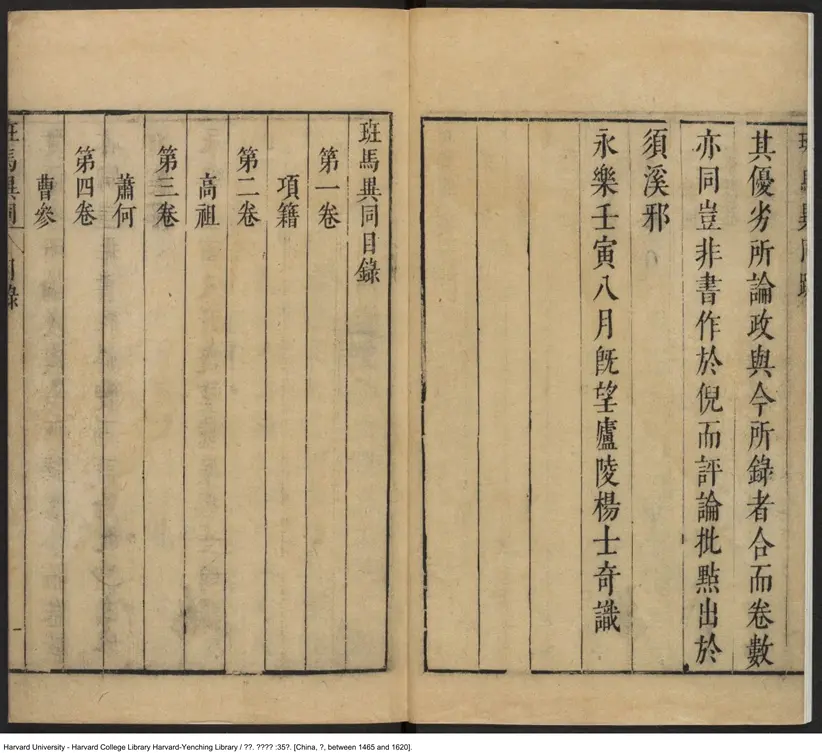 其優劣所論政與今所錄者合而卷數
亦同豈非書作於倪而評論批點出於
須溪邪
永樂壬寅八月旣望廬陵楊士奇識
班馬異同目錄
第一卷
項籍
第二卷
高祖
第三卷
蕭何
第四卷
曹參
班馬異同
目錄
一
Harvard University - Harvard College Library Harvard-Yenching Library / ??. ???? :35?. [China, ?, between 1465 and 1620].